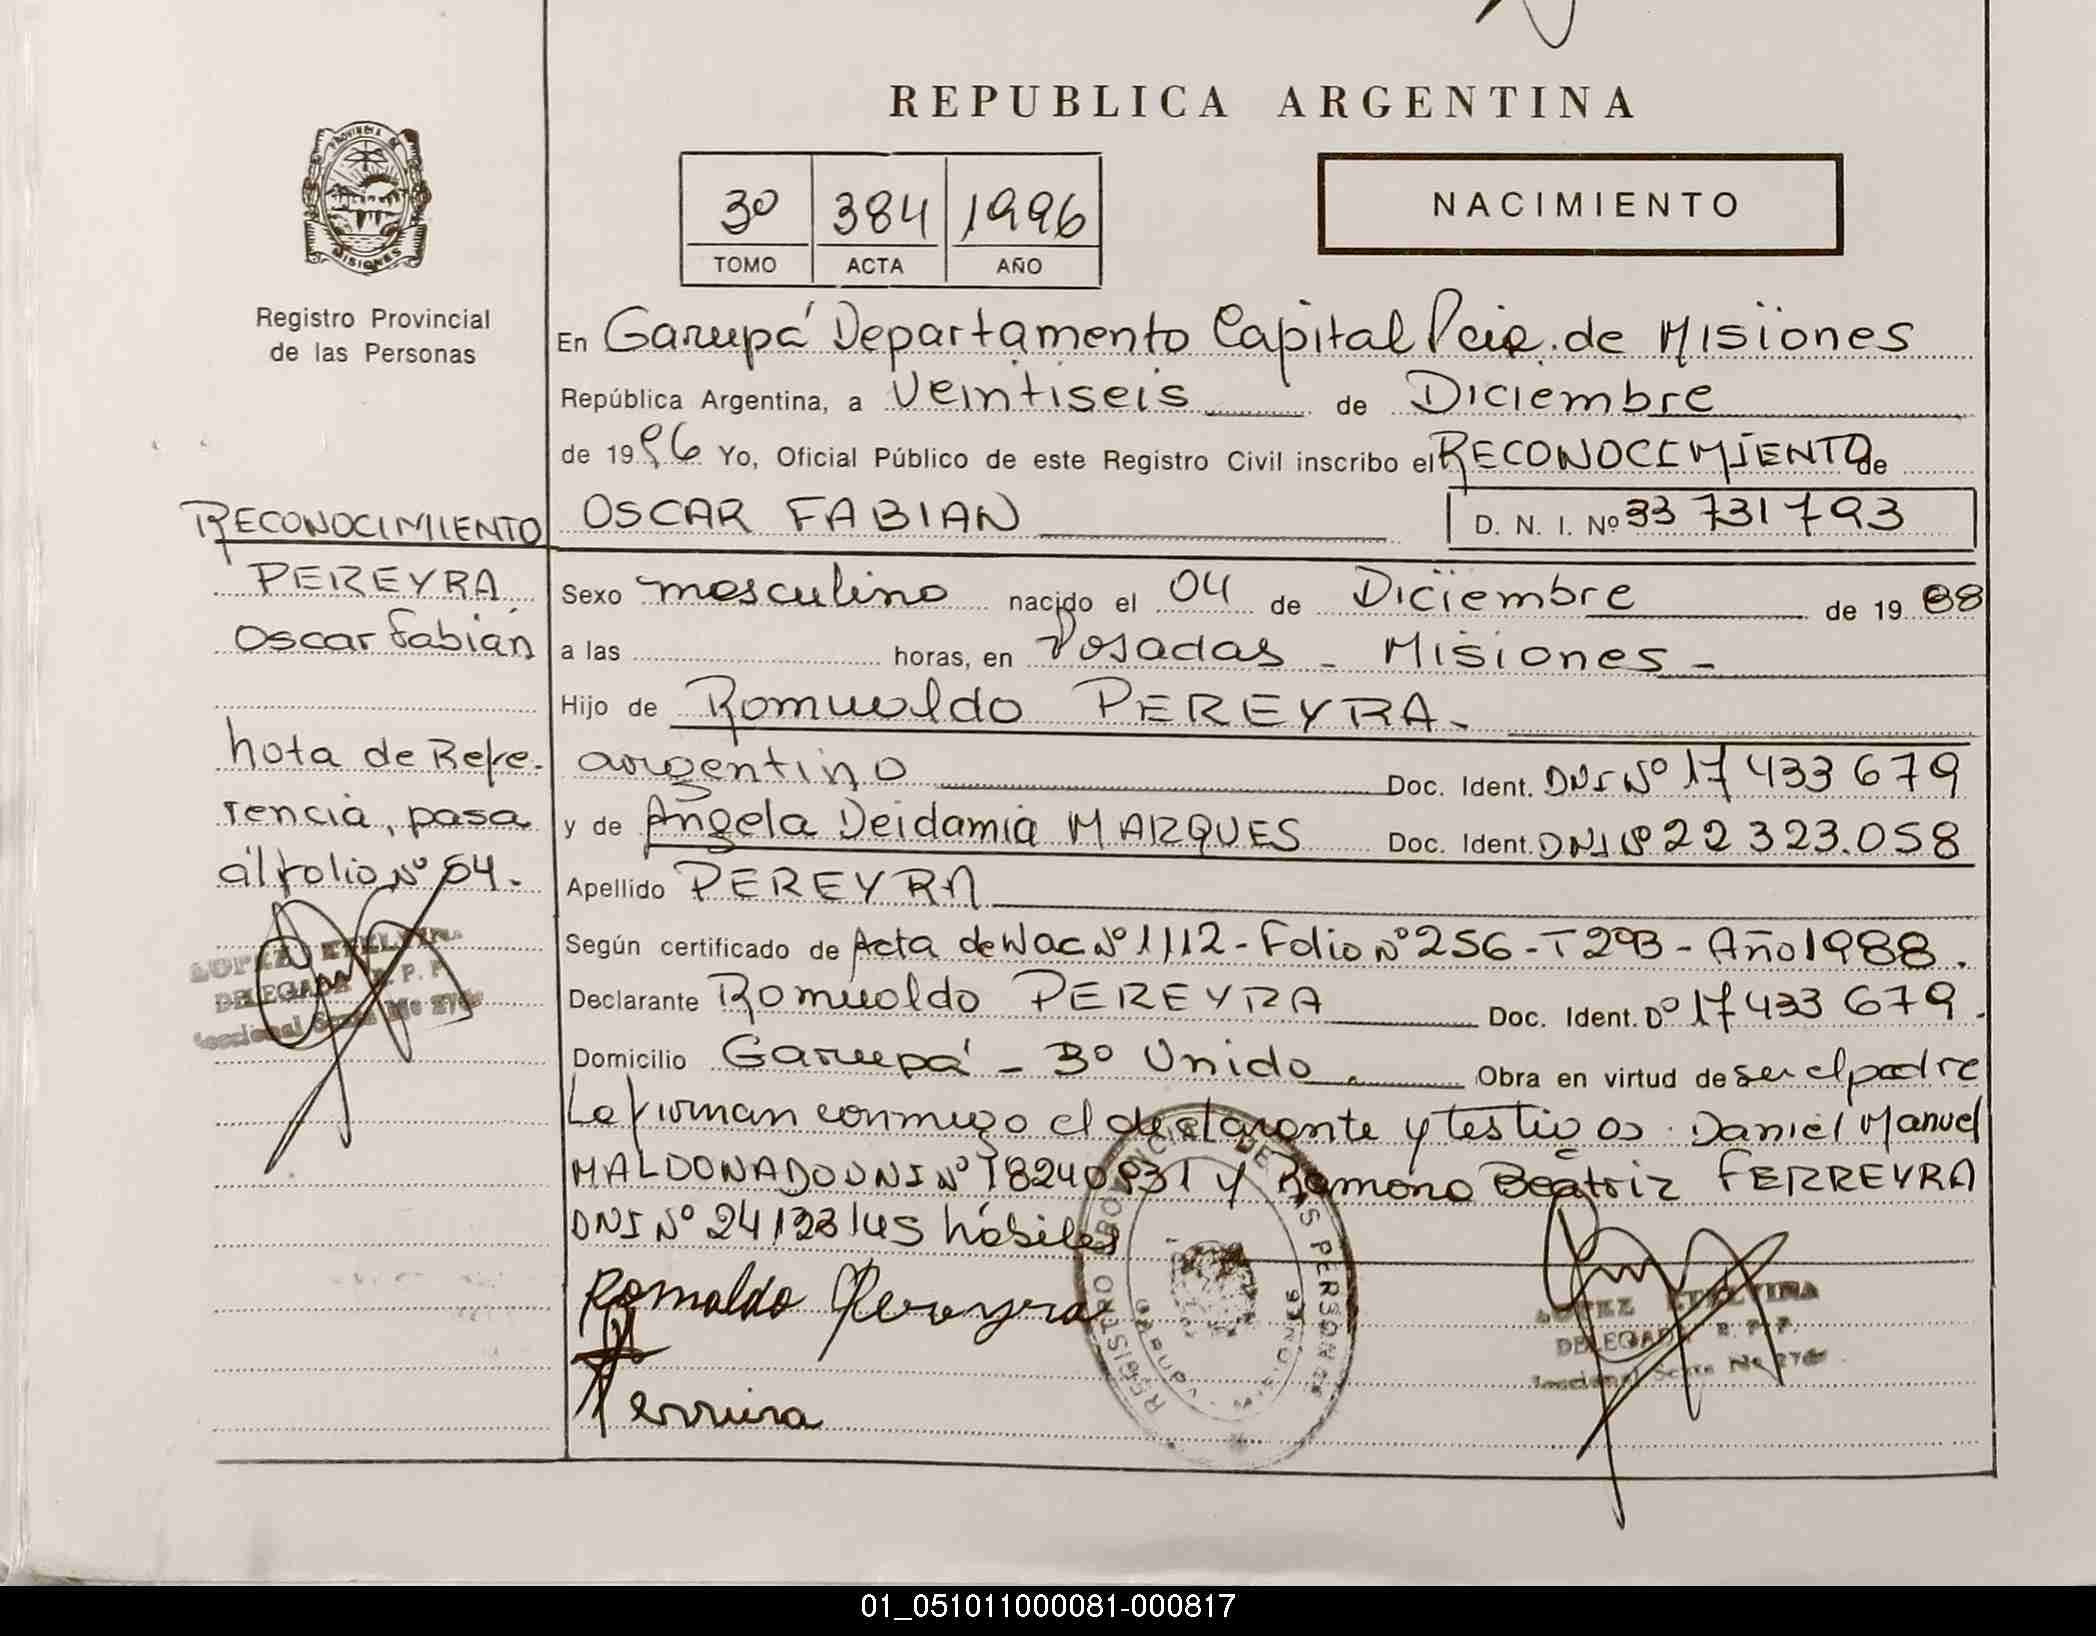 REPUBLICA ARGENTINA
PROVINCIA DE
MISIONES
Registro Provincial
de las Personas
3º 384 1996
TOMO ACTA AÑO
NACIMIENTO
En Garupá Departamento Capital Pcia. de Misiones
República Argentina, a Veintiseis de Diciembre
de 1996 Yo, Oficial Público de este Registro Civil inscribo el RECONOCIMIENTO de
OSCAR FABIAN D. N. I. Nº 33 731 793
Sexo masculino nacido el 04 de Diciembre de 19 88
a las horas, en Posadas - Misiones -
Hijo de Romualdo PEREYRA -
argentino Doc. Ident. DNI Nº 17 433 679
y de Angela Deidamia MARQUES Doc. Ident. DNI Nº 22 323.058
Apellido PEREYRA
Según certificado de Acta de Nac Nº 1112 - Folio Nº 256 - T 2ºB - Año 1988.
Declarante Romualdo PEREYRA Doc. Ident. Dº 17 433 679.
Domicilio Garupá - Bº Unido. Obra en virtud de ser el padre
Le firman conmigo el declarante y testigos. Daniel Manuel
MALDONADO DNI Nº y Ramona Beatriz FERREYRA
DNI Nº hábiles
Romaldo Pereyra
Ferreira
RECONOCIMIENTO
PEREYRA
Oscar Fabián
nota de Refe-
rencia, pasa
al folio Nº 54.
LOPEZ ETELVINA
DELEGADA R. P. P.
Seccional Sexta Nº
REGISTRO PROVINCIAL DE LAS PERSONAS
LOPEZ ETELVINA
DELEGADA R. P. P.
Seccional Sexta Nº
01_051011000081-000817